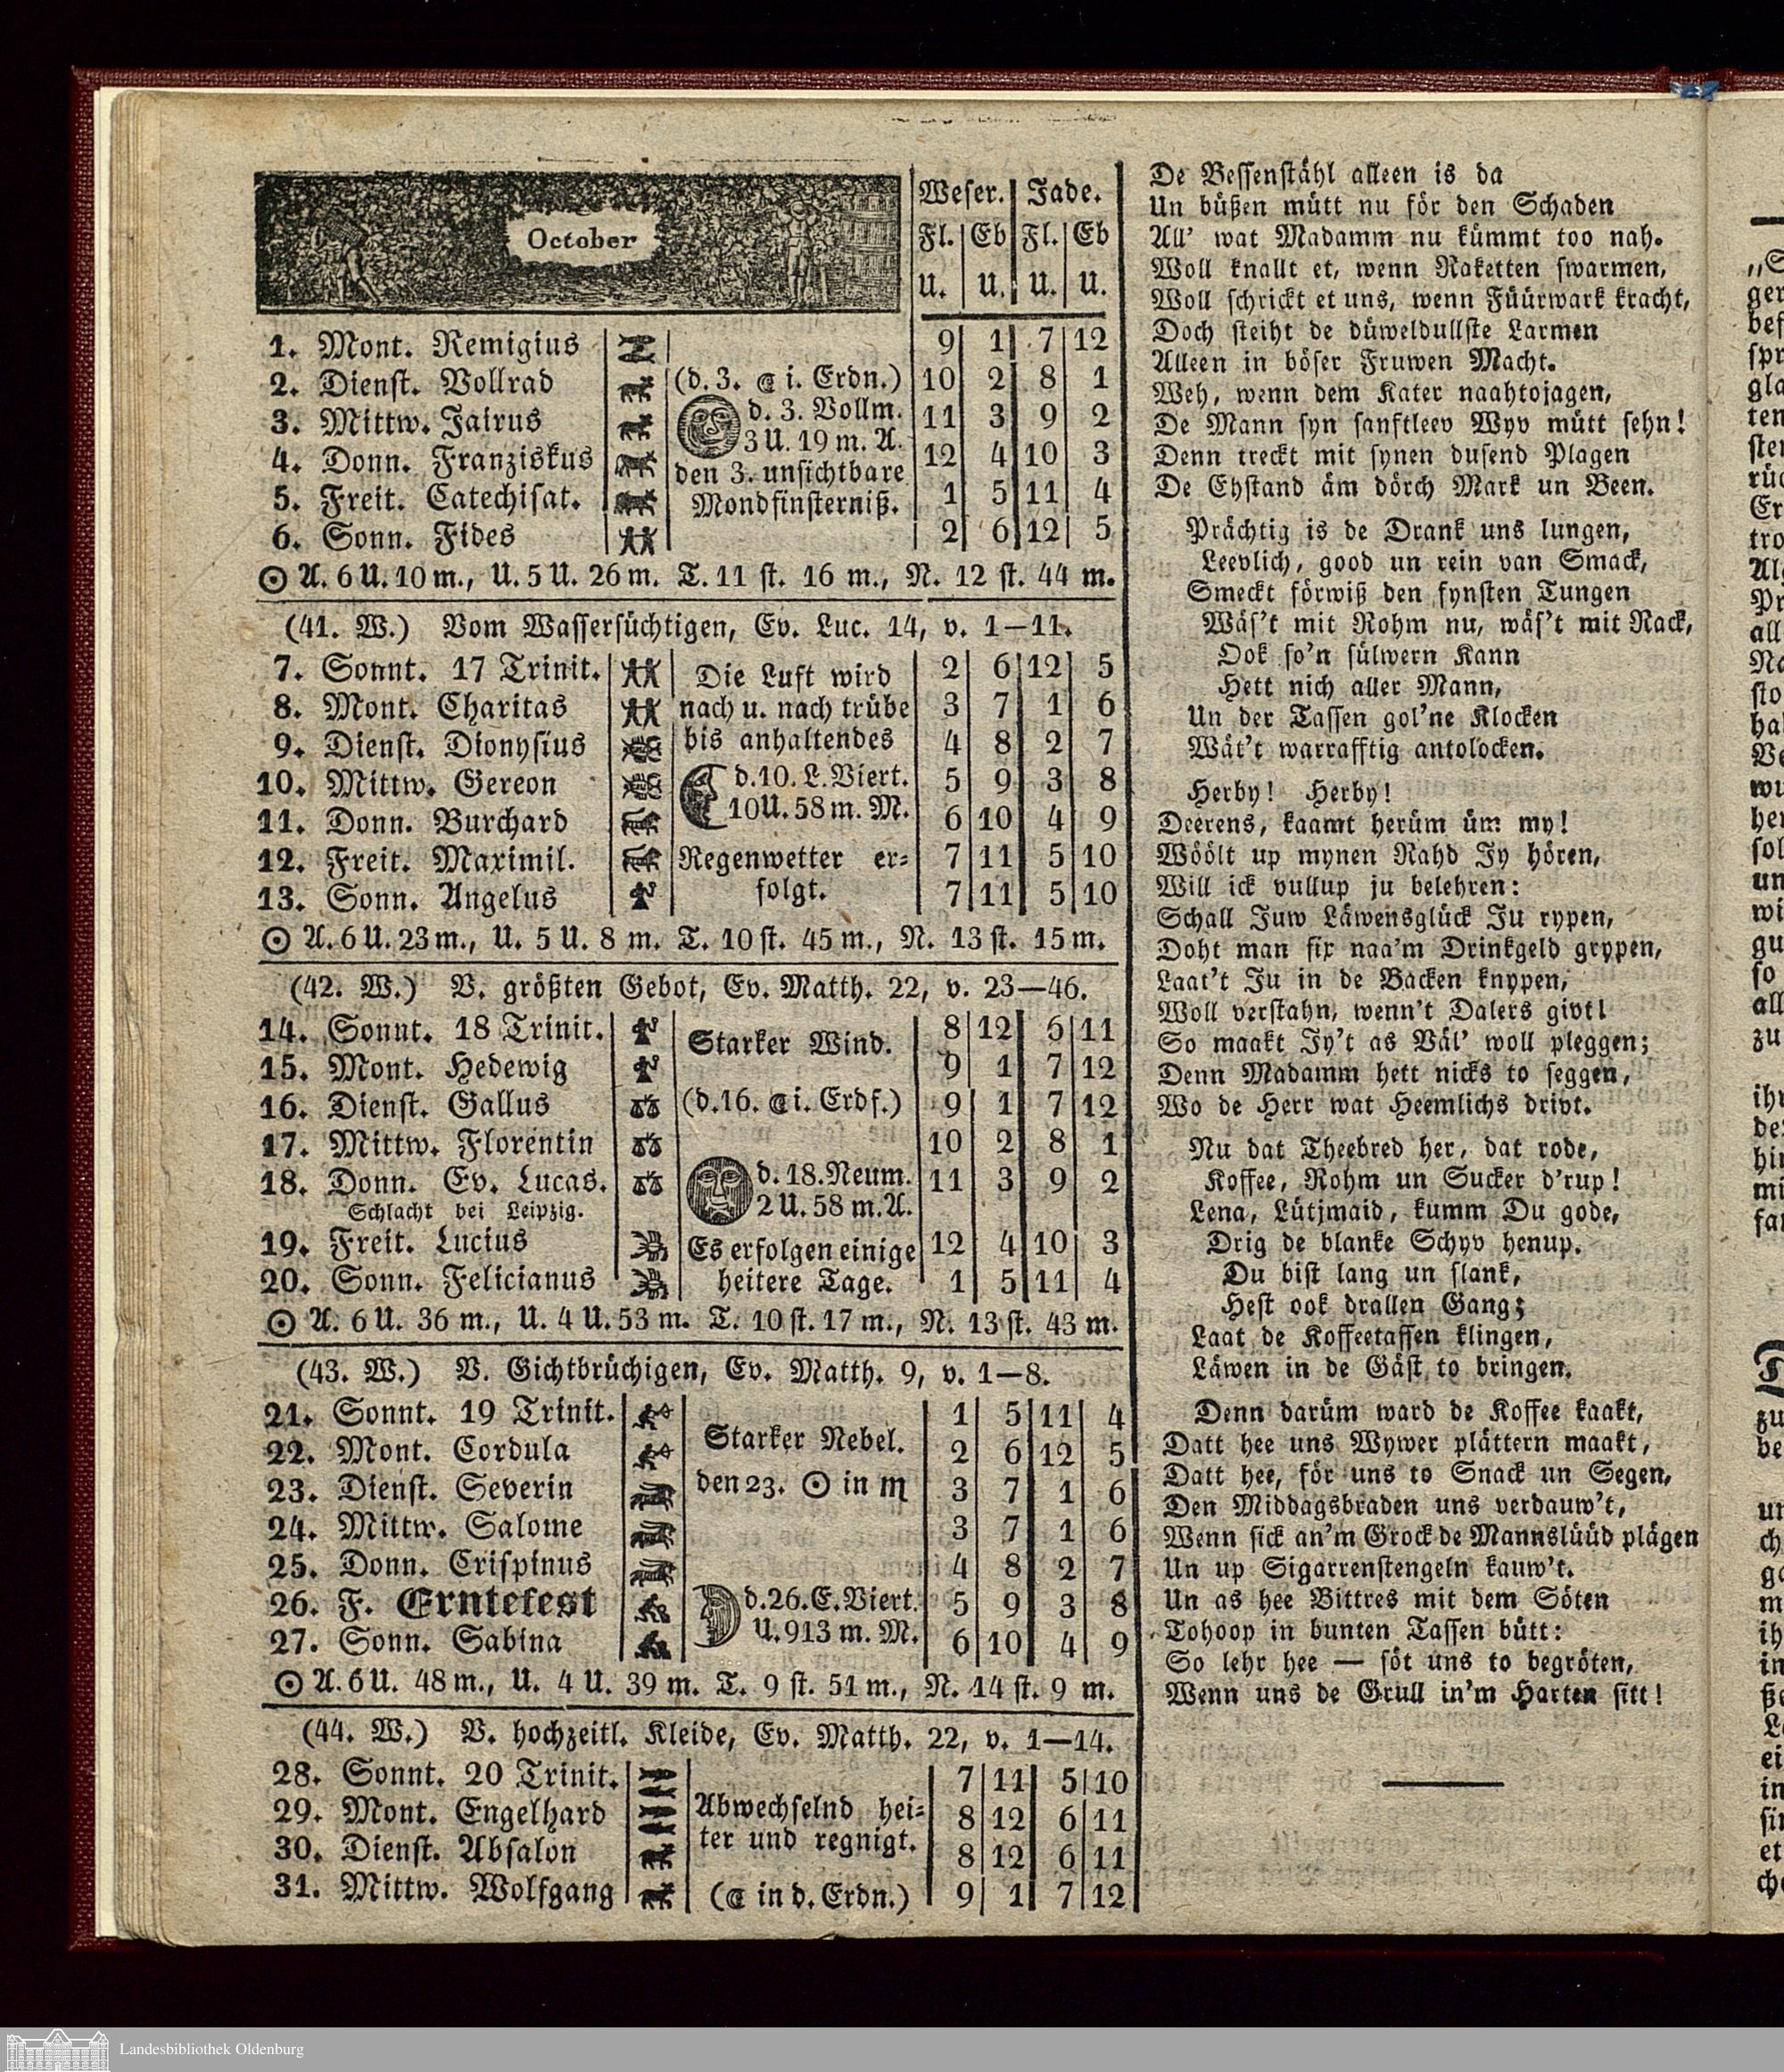 October
Weser. Jade.
Fl. Eb Fl. Eb
U. U. U. U.
1. Mont. Remigius 9 1 7 12
2. Dienst. Vollrad (d. 3. ☾ i. Erdn.) 10 2 8 1
3. Mittw. Jairus d. 3. Vollm. 11 3 9 2
3 U. 19 m. A.
4. Donn. Franziskus den 3. unsichtbare 12 4 10 3
5. Freit. Catechisat. Mondfinsterniß. 1 5 11 4
6. Sonn. Fides 2 6 12 5
☉ A. 6 U. 10 m., U. 5 U. 26 m. T. 11 st. 16 m., N. 12 st. 44 m.
(41. W.) Vom Wassersüchtigen, Ev. Luc. 14, v. 1—11.
7. Sonnt. 17 Trinit. Die Luft wird 2 6 12 5
8. Mont. Charitas nach u. nach trübe 3 7 1 6
9. Dienst. Dionysius bis anhaltendes 4 8 2 7
10. Mittw. Gereon d. 10. L. Viert. 5 9 3 8
11. Donn. Burchard 10 U. 58 m. M. 6 10 4 9
12. Freit. Maximil. Regenwetter er- 7 11 5 10
13. Sonn. Angelus folgt. 7 11 5 10
☉ A. 6 U. 23 m., U. 5 U. 8 m. T. 10 st. 45 m., N. 13 st. 15 m.
(42. W.) V. größten Gebot, Ev. Matth. 22, v. 23—46.
14. Sonnt. 18 Trinit. Starker Wind. 8 12 6 11
15. Mont. Hedewig 9 1 7 12
16. Dienst. Gallus (d. 16. ☾ i. Erdf.) 9 1 7 12
17. Mittw. Florentin 10 2 8 1
18. Donn. Ev. Lucas. d. 18. Neum. 11 3 9 2
Schlacht bei Leipzig. 2 U. 58 m. A.
19. Freit. Lucius Es erfolgen einige 12 4 10 3
20. Sonn. Felicianus heitere Tage. 1 5 11 4
☉ A. 6 U. 36 m., U. 4 U. 53 m. T. 10 st. 17 m., N. 13 st. 43 m.
(43. W.) V. Gichtbrüchigen, Ev. Matth. 9, v. 1—8.
21. Sonnt. 19 Trinit. 1 5 11 4
22. Mont. Cordula Starker Nebel. 2 6 12 5
23. Dienst. Severin den 23. ☉ in ♏ 3 7 1 6
24. Mittw. Salome 3 7 1 6
25. Donn. Crispinus 4 8 2 7
26. F. Erntefest d. 26. E. Viert. 5 9 3 8
27. Sonn. Sabina U. 913 m. M. 6 10 4 9
☉ A. 6 U. 48 m., U. 4 U. 39 m. T. 9 st. 51 m., N. 14 st. 9 m.
(44. W.) V. hochzeitl. Kleide, Ev. Matth. 22, v. 1—14.
28. Sonnt. 20 Trinit. 7 11 5 10
29. Mont. Engelhard Abwechselnd hei- 8 12 6 11
30. Dienst. Absalon ter und regnigt. 8 12 6 11
31. Mittw. Wolfgang (☾ in d. Erdn.) 9 1 7 12
De Bessenstähl alleen is da
Un büßen mütt nu för den Schaden
All' wat Madamm nu kümmt too nah.
Woll knallt et, wenn Raketten swarmen,
Woll schrickt et uns, wenn Füürwark kracht,
Doch steiht de düweldullste Larmen
Alleen in böser Fruwen Macht.
Weh, wenn dem Kater naahtojagen,
De Mann syn sanftleev Wyv mütt sehn!
Denn treckt mit synen dusend Plagen
De Ehstand äm dörch Mark un Been.
Prächtig is de Drank uns lungen,
Leevlich, good un rein van Smack,
Smeckt förwiß den fynsten Tungen
Wäs't mit Rohm nu, wäs't mit Rack,
Ook so'n sülwern Kann
Hett nich aller Mann,
Un der Tassen gol'ne Klocken
Wät't warrafftig antolocken.
Herby! Herby!
Deerens, kaamt herüm üm my!
Wöölt up mynen Rahd Jy hören,
Will ick vullup ju belehren:
Schall Juw Läwensglück Ju rypen,
Doht man fix naa'm Drinkgeld grypen,
Laat't Ju in de Backen knypen,
Woll verstahn, wenn't Dalers givt!
So maakt Jy't as Väl' woll pleggen;
Denn Madamm hett nicks to seggen,
Wo de Herr wat Heemlichs drivt.
Nu dat Theebred her, dat rode,
Koffee, Rohm un Sucker d'rup!
Lena, Lütjmaid, kumm Du gode,
Drig de blanke Schyv henup.
Du bist lang un slank,
Hest ook drallen Gang;
Laat de Koffeetassen klingen,
Läwen in de Gäst to bringen.
Denn darüm ward de Koffee kaakt,
Datt hee uns Wywer plättern maakt,
Datt hee, för uns to Snack un Segen,
Den Middagsbraden uns verdauw't,
Wenn sick an'm Grock de Mannslüüd plägen
Un up Sigarrenstengeln kauw't.
Un as hee Bittres mit dem Söten
Tohoop in bunten Tassen bütt:
So lehr hee — söt uns to begröten,
Wenn uns de Grull in'm Harten sitt!
Landesbibliothek Oldenburg